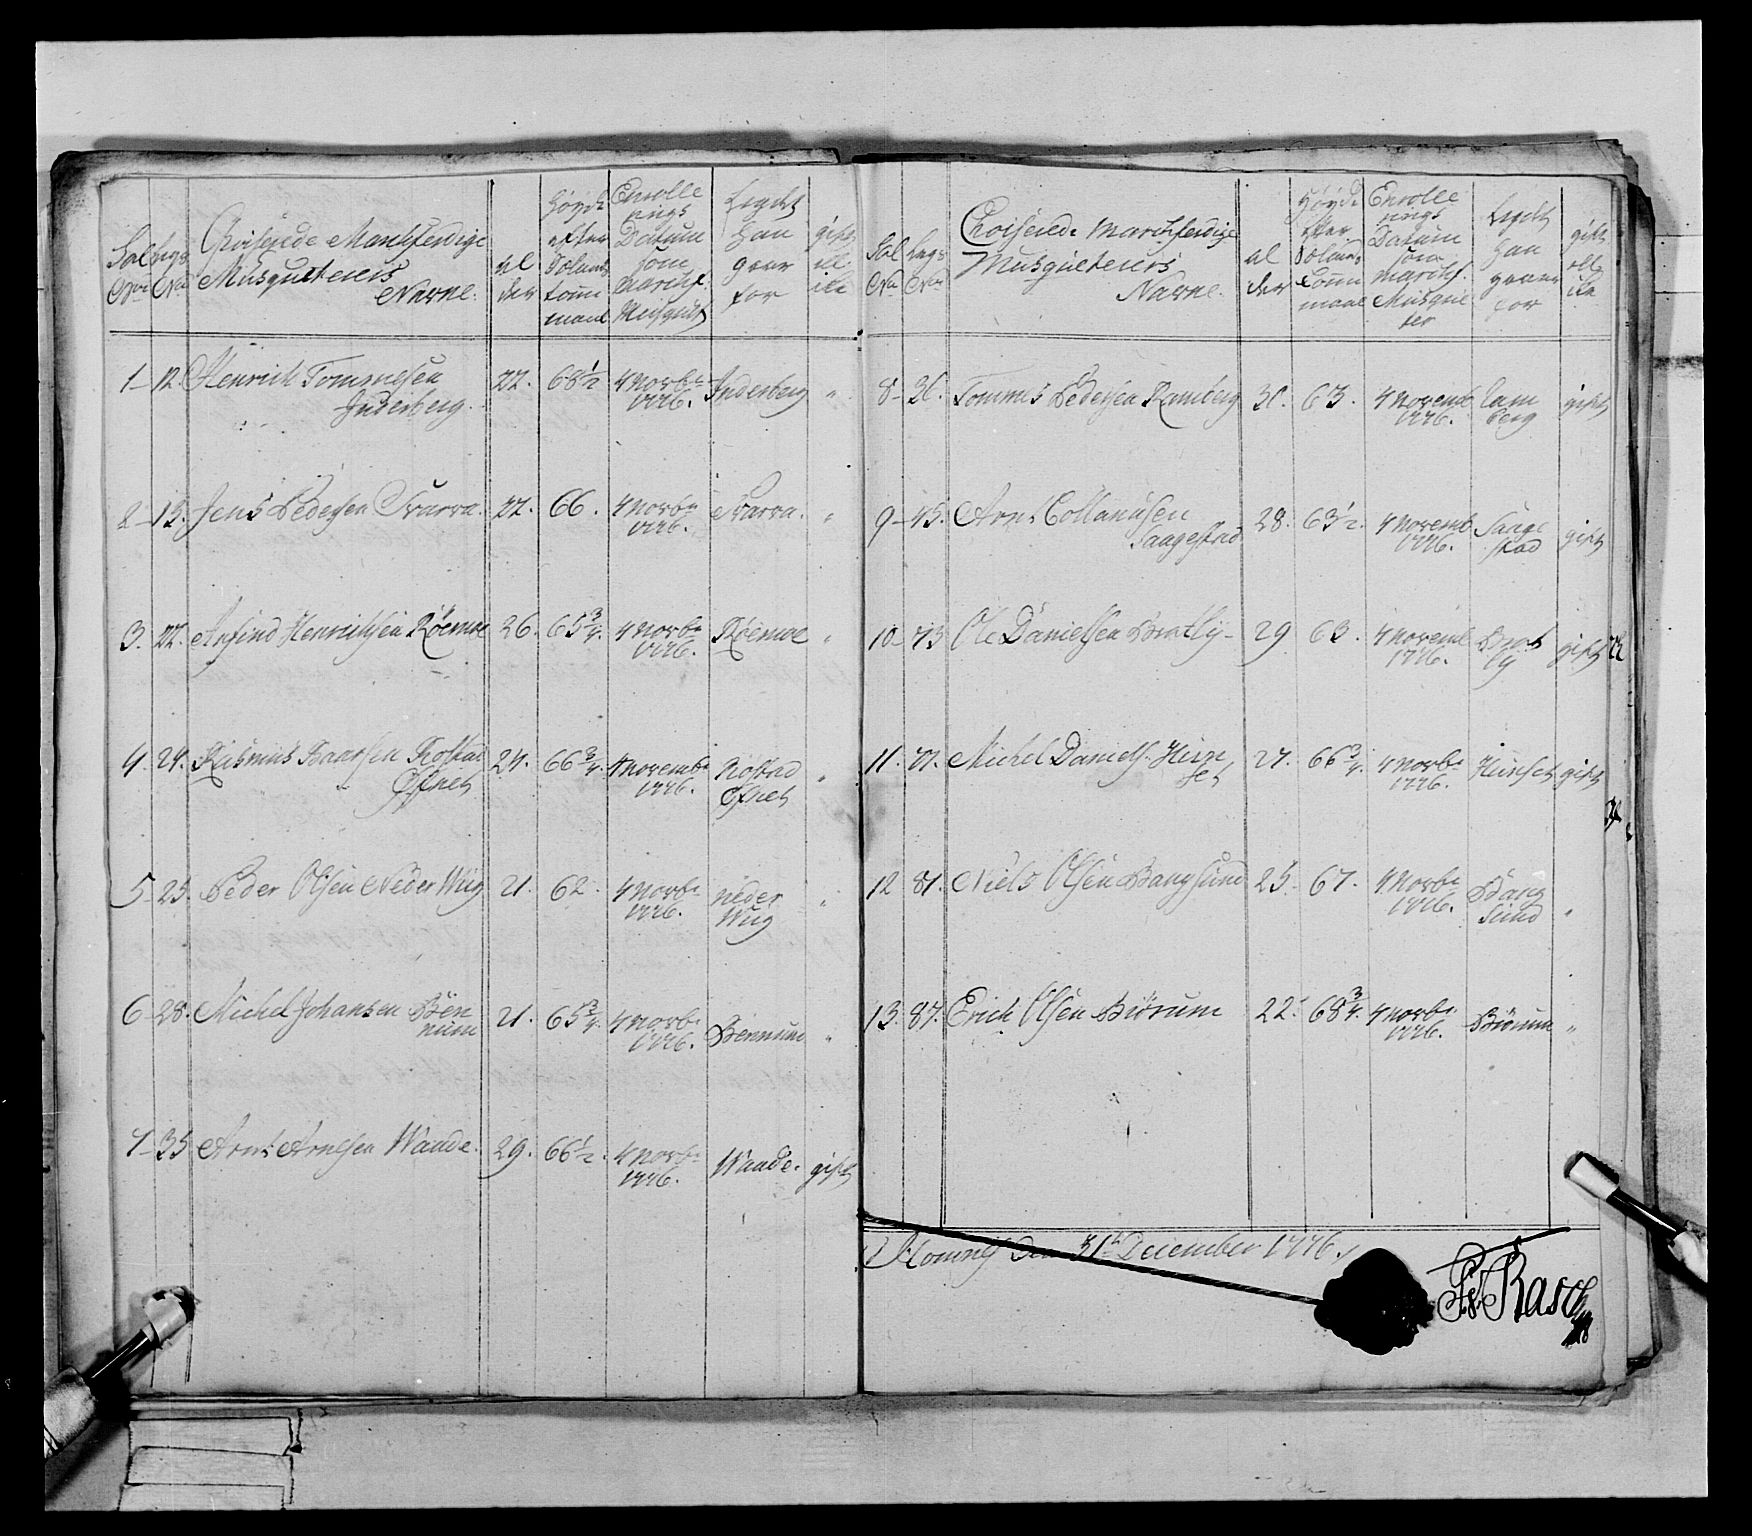 Sal Lægs
No No
Choiserede Marchferdige
Musqueteurs
Navne.
al
der
Høyde
efter
Tom
maal
Enrolle
rings
Datum
som
March:
Musquet
Legdet
han
giør
for
gift
ell
ike
1 12. Henrich Tommesen
Inderberg.
22. 68½ 4 Novbr
1776. Inderberg "
2 15. Jens Pedersen Svarva. 22. 66. 4 Novbr
1776. Svarva. "
3. 22. Anfind Henrichsen Røemoe 26. 65¾. 4 Novbr
1776. Røemoe "
4. 24. Rasmus Baarsen Rostad
Øfnet
24. 66¾. 4 Novembr
1776. Rostad
Øfnet "
5 25. Peder Olsen Neder Wiig 21. 62. 4 Novbr
1776. Neder
Wiig "
6 28. Michel Johansen Ben
num
21. 65¾. 4 Novbr
1776. Bennum "
7 35 Arnt Arnesen Waade. 29. 66½. 4 Novbr
1776. Waade. gift
Sal Lægs
No No
Choiserede Marchferdige
Musqueteurs
Navne.
al
der
Høyde
efter
Tom
maal
Enrolle
rings
Datum
som
March:
Musque
ter
Legdet
han
for
gift
ell
ike
8 36. Tommes Pedersen Ramberg 36. 63. 4 Novemb
1776. Ram
berg gift
9 45. Arnt Collanusen
Saagestad
28. 63½. 4 Novemb
1776. Saage
stad gift
10 73 Ole Danielsen Bratlij 29 63. 4 Novemb
1776. Brat
lij gift
11. 77. Michel Daniels. Hun
set
27. 66¾. 4 Novbr
1776. Hunset gift
12 81. Niels Olsen Bangsund 25. 67. 4 Novbr
1776. Bang
sund "
13. 87. Erich Olsen Biørum 22. 68¾. 4 Novbr
1776. Biørum "
den 31te December 1776.
Rasch